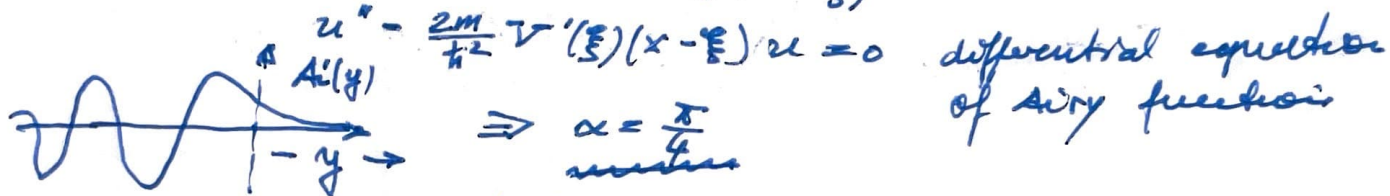 u'' - \frac{2m}{\hbar^2} V'(ξ)(x - ξ) u = 0 differential equation
Ai(y) of Airy function
⇒ α = \frac{π}{4}
- y →